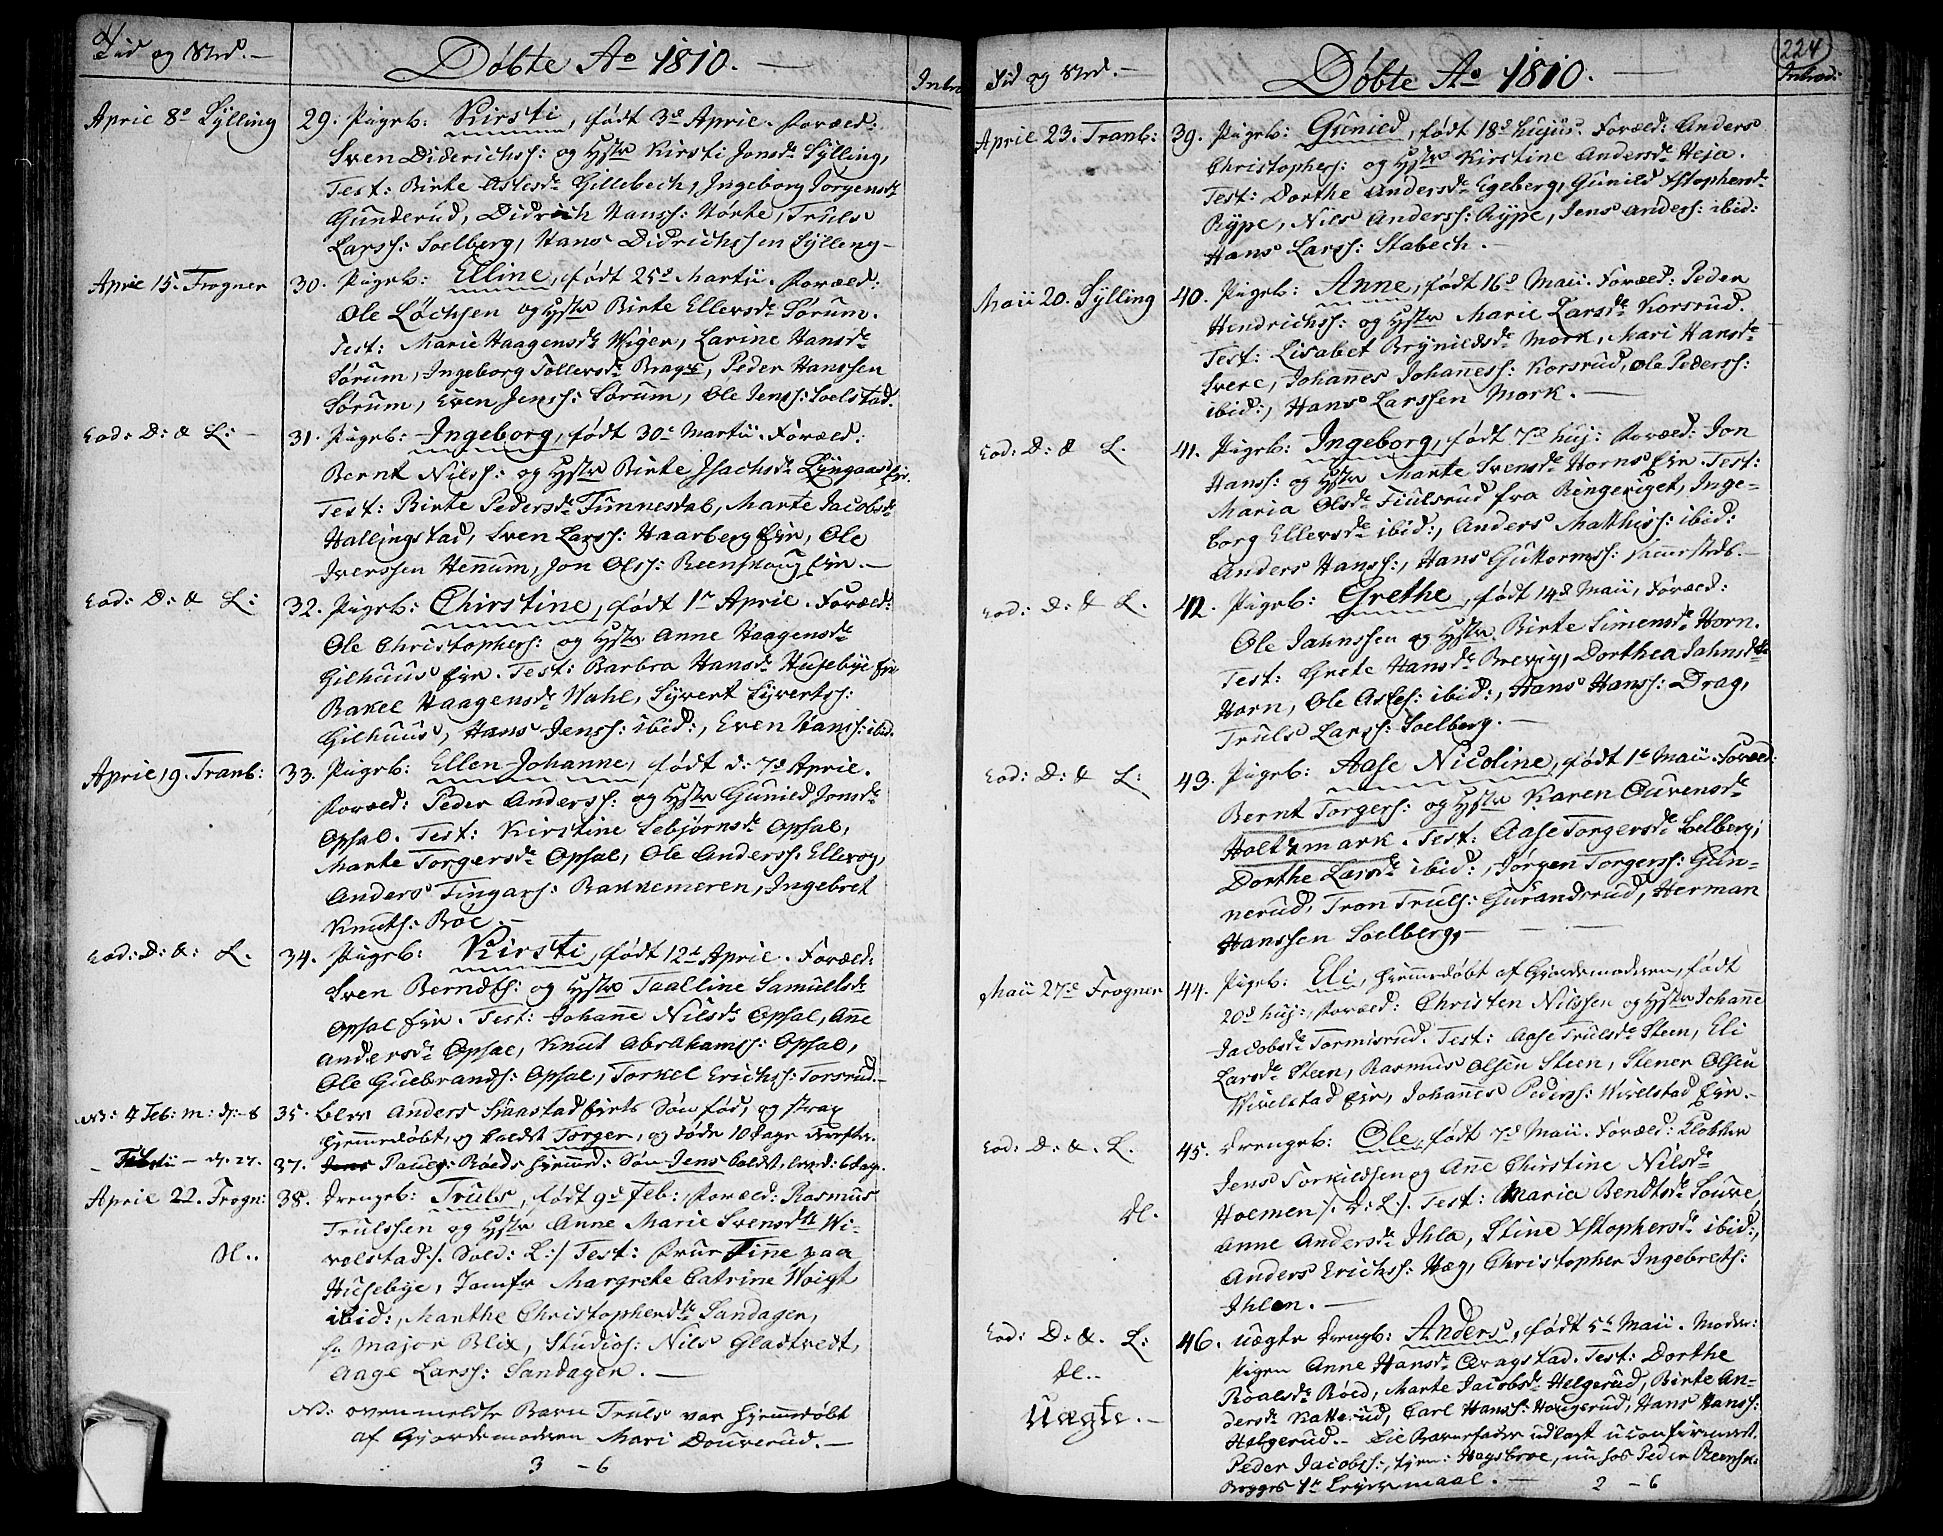 Tid og Sted.
Døbte Ao 1810.
Intro
April 8d Sylling
29. Pigeb: Kirsti, født 3d April. Foræld:
Sven Diderichss: og Hstr Kirsti Jonsd. Sylling,
Test: Birte Aslesd. Gillebech, Ingeborg Jorgensd.
Gunderud, Didrich Hanss: Hørte, Truls
Larss: Soelberg, Hans Didrichssen Sylleng
April 15. Frogner
30. Pigeb: Elline, født 25d Martii. Foræld:
Ole Løchsen og Hstr Birte Ellersd. Sørum.
Test: Marie Haagensd. Wiger, Larine Hansd.
Sørum, Ingeborg Tollersd. Brages, Peder Hanssen
Sørum, Even Jenss: Sørum, Ole Jenss: Soelstad.
Eod: D: & L:
31. Pigeb: Ingeborg, født 30d Martii. Foræld:
Bernt Nilss: og Hstr Birte Isachsd. Lyngaas Eie.
Test: Birte Pedersd. Tunnesdal, Marte Jacobsd.
Hallingstad, Sven Larss: Haarberg Eie, Ole
Iverssen Henum, Jon Olss: Reenskoug Eie.
Eod: D: & L:
32. Pigeb: Chirstine, født 1ste April. Foræld:
Ole Christophers: og Hstr Anne Haagensd.
Gilhuus Eie. Test: Barbra Hansd. Husebye Eie
Rakel Haagensd. Wahl, Syvert Syvertss:
Gilhuus, Hans Jenss: ibid:, Even Hanss: ibid.
April 19. Tranb:
33. Pigeb: Ellen Johanne, født d: 7d April.
Foræld: Peder Anderss: og Hstr Gunild Jonsd.
Opsal. Test: Kirstine Sebjørnsd. Opsal,
Marte Torgersd. Opsal, Ole Anderss: Ellevog,
Anders Fingars: Bakkemeren, Ingebret
Knuts: Boe.
Eod: D: &: L.
34. Pigeb: Kirsti, født 12d April. Foræld:
Sven Berndts: og Hstr Taalline Samuelsd.
Opsal Eie. Test: Johane Nilsd. Opsal, Ane
Andersd. Opsal, Knut Abrahamss: Opsal,
Ole Guebrands: Opsal, Torkel Erichss: Torsrud.
NB: 4 Feb: m: d:-8
35. Blev Anders Skaastad Eiets Søn fød, og strax
hjemmedøbt, og kaldt Torger, og døde 10 dage derefter.
d. 27.
37. Pauels: Røeds hjemmd: Søn Jens kaldt, leved: 6 dag.
April 22. Frogn:
38. Drengeb: Truls, født 9d Feb:, Foræld: Rasmus
Trulssen og Hstr Anne Marie Svensd. Wi-
velstad /: Sold: L:/ Test: Frue Tinne paa
Dl..
Husebye, Jomfr Margrete Catrine Woigt
ibid:, Marthe Christopherd. Sandager,
hr Major Blix, Studios: Nils Gladtvedt,
Aage Larss: Sandager.
NB: ovenmeldte Barn Truls var hjemmedøbt
af Gjordemoderen Mari Douverud.
3 - 6
Tid og Sted.
Døbte Ao 1810.
224
Introd:
April 23. Tranb:
39. Pigeb: Gunild, født 18d hujus. Foræld: Anders
Christophers: og Hstr Kirstine Andersd. Heja.
Test: Dorthe Andersd. Egeberg, Gunild Xstophersd.
Rype, Nils Anderss: Rype, Jens Anders: ibid:
Hans Larss: Stabech.
Maii 20. Sylling
40. Pigeb: Anne, født 16d Maii. Foræld: Peder
Hendrichss: og Hstr Marie Larsd. Korsrud.
Test: Lisabet Brynildsd. Mork, Mari Hansd.
Svere, Johanes Johaness: Korsrud, Ole Pederss:
ibid:, Hans Larssen Mork.
Eod: D: & L.
41. Pigeb: Ingeborg, født 7d huj: Foræld: Jon
Hanss: og Hstr Marte Svensd. Horns Eie. Test:
Maria Olsd. Fiulsrud fra Ringeriget, Inge-
borg Ellersd. ibid:, Anders Matthiss: ibid:
Anders Hanss:, Hans Guttormss: samestæds.
Eod: D: & L.
42. Pigeb: Grethe, født 14d Maii, Foræld:
Ole Jahnssen og Hstr Birte Simensd. Horn.
Test: Grete Hansd. Brevig, Dorthea Jahnsd.
Horn, Ole Asles: ibid:, Hans Hanss: Drag,
Truls Larss: Soelberg.
Eod: D: & L:
43. Pigeb: Aase Nicoline, født 1ste Maii. Foræld:
Bernt Torgers: og Hstr Karen Auvensd.
Holtzmark. Test: Aase Torgersd. Soelberg,
Dorthe Larsd. ibid:, Jørgen Torgerss: Gun-
nerud, Tron Truls: Gurandsrud, Herman
Hanssen Soelberg,
Maii 27d Frogner
44. Pigeb: Eli, hjemmedøbt af Gjordemoderen, født
20d huj:, Foræld: Christen Nilssen og Hstr Johane
Jacobsd. Tormisrud. Test: Aase Trulsd. Steen, Eli
Larsd. Steen, Rasmus Olsen Steen, Stener Olsen
Wivelstad Eie, Johanes Peders: Wivelstad Eie.
Eod: D: &. L.
45. Drengeb: Ole, født 7d Maii. Foræld: Klokker
Jens Torkildsen og Ane Chirstine Nilsd.
Dl.
Hoemen /. D: L/. Test: Maria Bendtsd. Souve,
Anne Andersd. Ihla, Stine Xstophersd. ibid:,
Anders Erichss: Hæg, Christopher Ingebrets:
Ihlen.
Eod: D: &. L:
46. Uægte Drengb: Anders, født 5te Maii. Moder:
Dl..
Pigen Anne Hansd. Aragstad. Test: Dorthe
Roalsd. Røed, Marte Jacobsd. Helgerud, Birte An-
Uægte.
dersd. Katterud, Carl Hanss: Haugerud, Hans Hanss:
Helgerud. Til Barnefader udlagt uconfirmert
Peder Jacobss:, tjen: Hagsbroe, nu hos Peder Reensk:
Brygges 1te Leiermaal.
2 - 6